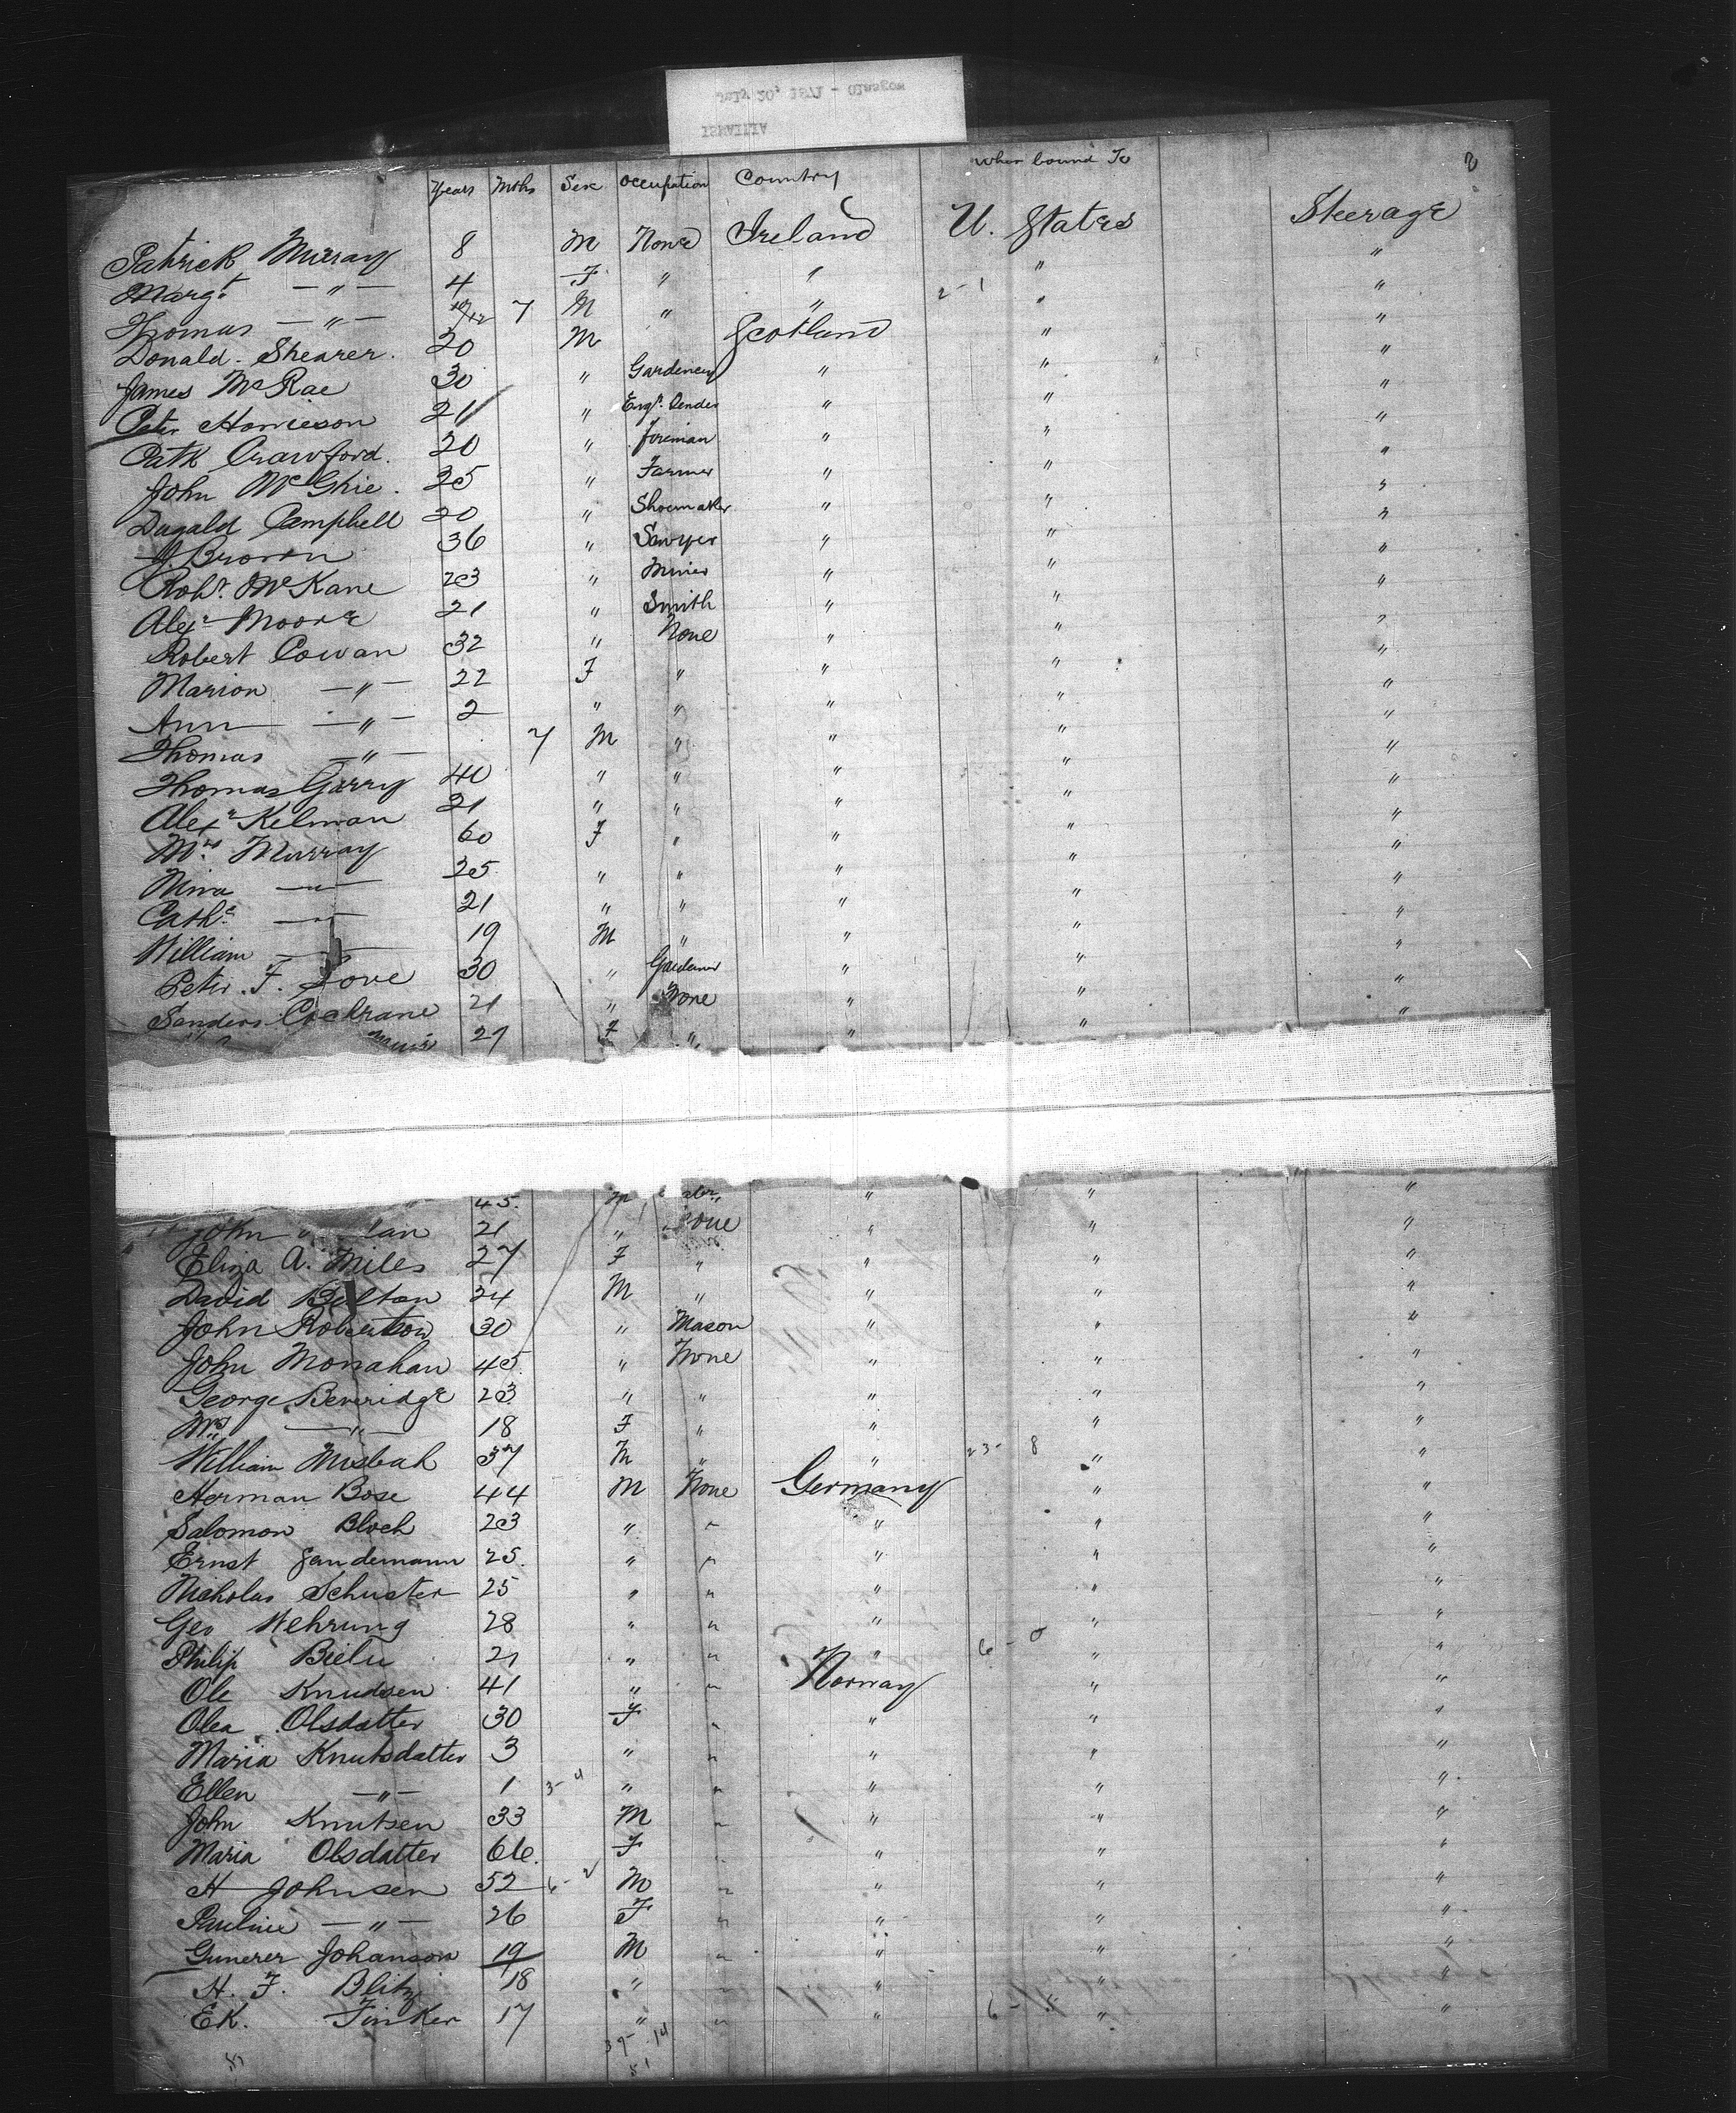 ISMAILIA
July 20, 1871 - Glasgow
Years Mohs Sex Occupation Country Wher bound To
Patrick Murray 8 M None Ireland U. States Steerage
Margt — " — 4 F " " " "
Thomas — " — 10/12 7 M " " 2 - 1 " "
Donald Shearer. 20 M Scotland " "
James McRae 30 " Gardener " " "
Peter 21 " " " "
Patk Crawford. 20 " Fireman " " "
John McGhie. 25 " Farmer " " "
Dugald Campbell 20 " Shoemaker " " "
J. Brown 36 " Sawyer " " "
Robt. McKane 23 " Miner " " "
Alexr Moore 21 " Smith " " "
Robert Cowan 32 " None " " "
Marion — " — 22 F " " " "
Ann — " — 2 " " " " "
Thomas — " — 7 M " " " "
Thomas Garry 40 " " " " "
Alexr Kelman 21 " " " " "
Mrs. Murray 60 F " " " "
Nina — " — 25 " " " " "
Cathe — " — 21 " " " " "
William — " — 19 M " " " "
Peter. F. Love 30 " Gardener " " "
Sanders Cochrane 21 " None " " "
27 F " " "
45. M " " "
John lan 21 " None " " "
Eliza A. Miles 27 F " " " "
David Belton 24 M " " " "
John Robertson 30 " Mason " " "
John Monahan 45. " None " " "
George Beveridge 23 " " " " "
Mrs — " — 18 F " " " "
William Misbah 37 M " " 23 - 8 " "
Herman Bose 44 M None Germany " "
Salomon Bloch 23 " " " " "
Ernst Sandemann 25. " " " " "
Nicholas Schuster 25 " " " " "
Geo Wehrung 28 " " " " "
Philip 21 " " " 6 - 0 " "
Ole Knudsen 41 " " Norway " "
Olea Olsdatter 30 F " " " "
Maria Knutsdatter 3 " " " " "
Ellen — " — 1 3 - 4 " " " " "
John Knutsen 33 M " " " "
Maria Olsdatter 66. F " " " "
H Johnsen 52 6 - 2 M " " " "
Pauline — " — 26 F " " " "
Gunerer Johanson 19 M " " " "
H. F. Blitz 18 " " " " "
EK. Finker 17 " " " 6 - " "
37 - 14
51 51